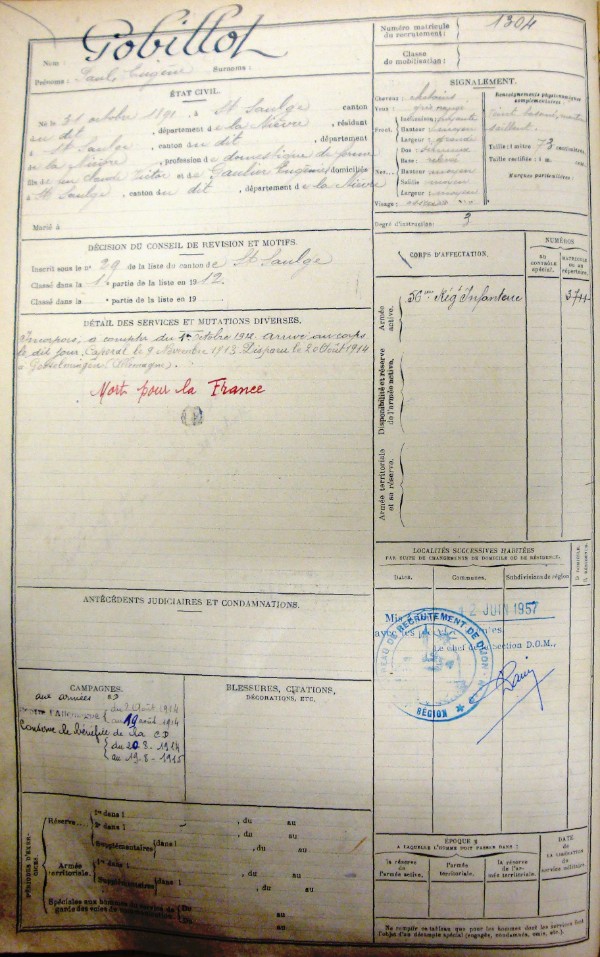 Nom : Gobillot
Prénoms : Paul, Eugène Surnoms :
Numéro matricule du recrutement : 1304
Classe de mobilisation :
ÉTAT CIVIL.
Né le 31 octobre 1891, à St Saulge canton
du dit, département de la Nièvre, résidant
à St Saulge, canton du dit, département
de la Nièvre, profession de domestique de ferme
fils de Claude Victor et de Gaulier Eugénie, domiciliés
à St Saulge, canton du dit, département de la Nièvre
Marié à
SIGNALEMENT.
Cheveux : châtains
Yeux :
Front. Inclinaison fuyante
Hauteur moyenne
Largeur : grande
Nez Dos :
Base : relevée
Hauteur moyenne
Saillie moyenne
Largeur moyenne
Visage :
Renseignements physionomiques complémentaires :
saillant.
Taille : 1 mètre 73 centimètres.
Taille rectifiée : 1 m. cent.
Marques particulières :
Degré d'instruction : 3
DÉCISION DU CONSEIL DE REVISION ET MOTIFS.
Inscrit sous le n° 29 de la liste du canton de St Saulge
Classé dans la 1e partie de la liste en 1912.
Classé dans la partie de la liste en 19
CORPS D'AFFECTATION.
NUMÉROS
AU CONTRÔLE spécial.
MATRICULE OU AU répertoire.
Armée active.
56me Rég. d'Infanterie
3744
Disponibilité et réserve de l'armée active.
Armée territoriale et sa réserve.
DÉTAIL DES SERVICES ET MUTATIONS DIVERSES.
Incorporé à compter du 1er octobre 1912. Arrivé au corps
le dit jour. Caporal le 9 Novembre 1913. Disparu le 20 Août 1914
à Gosselmingen (Allemagne).
Mort pour la France
LOCALITÉS SUCCESSIVES HABITÉES
PAR SUITE DE CHANGEMENTS DE DOMICILE OU DE RÉSIDENCE.
Dates. Communes. Subdivisions de région
D. DOMICILE. R. RÉSIDENCE.
12 JUIN 1957
Le chef de la Section D.O.M.,
BUREAU DE RECRUTEMENT DE DIJON
RÉGION
ANTÉCÉDENTS JUDICIAIRES ET CONDAMNATIONS.
CAMPAGNES.
aux armées CD
contre l'Allemagne du 2 août 1914
au 19 août 1914
Conserve le bénéfice de la CD
du 20-8-1914
au 19-8-1915
BLESSURES, CITATIONS,
DÉCORATIONS, ETC.
PÉRIODES D'EXERCICES.
Réserve.... 1re dans l , du au
2e dans l , du au
Supplémentaires dans l , du au
Armée territoriale. 1re dans l , du au
Supplémentaires dans l , du au
Spéciales aux hommes du service de garde des voies de communication. Du au
Du au
ÉPOQUE
A LAQUELLE L'HOMME DOIT PASSER DANS :
la réserve de l'armée active.
l'armée territoriale.
la réserve de l'armée territoriale.
DATE DE LA LIBÉRATION DU SERVICE MILITAIRE.
Ne remplir ce tableau que pour les hommes dont les services font
l'objet d'un décompte spécial (engagés, condamnés, omis, etc.).